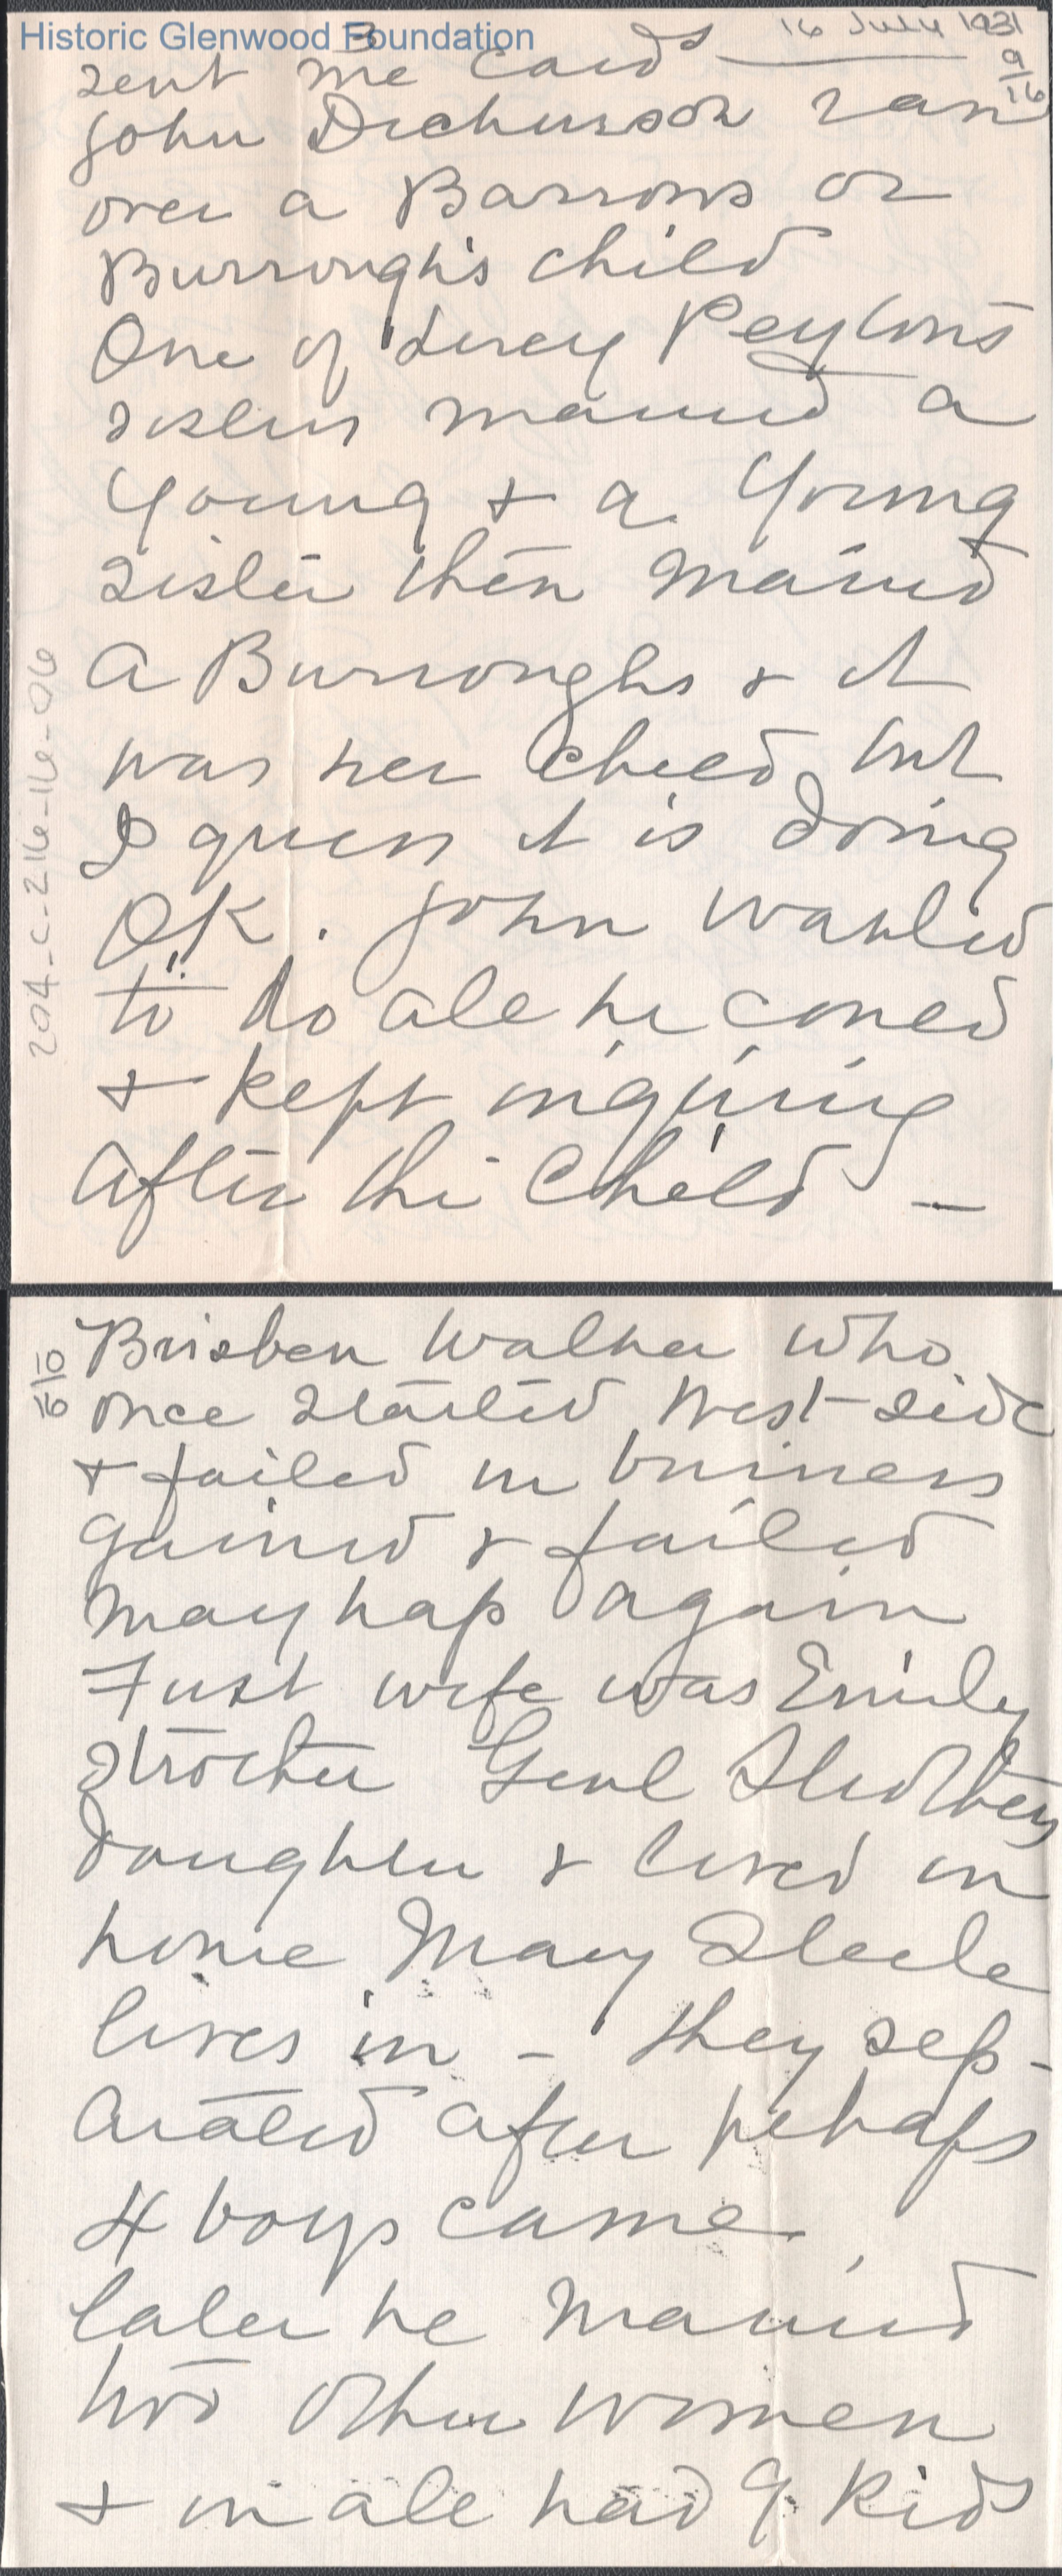 Historic Glenwood Foundation
16 July 1931
3
9/16
sent me cards
John Dickinson ran
over a Barrows or
Burrough's child
One of Lucy Peyton's
sisters married a
Young + a Young
sister then married
a Burroughs + it
was her child, but
I guess it is doing
OK. John wanted
to do all he could
+ kept inquiring
after the child -
204-C-216-16-06
10/16
Brisben Walker who
once started West-side
+ failed in business
gained + failed
mayhap again
First wife was Emily
Strother Genl Strothers
daughter + lived in
home Mary Steele
lives in - they sep-
arated after perhaps
4 boys came,
later he married
two other women
+ in all had 9 kids